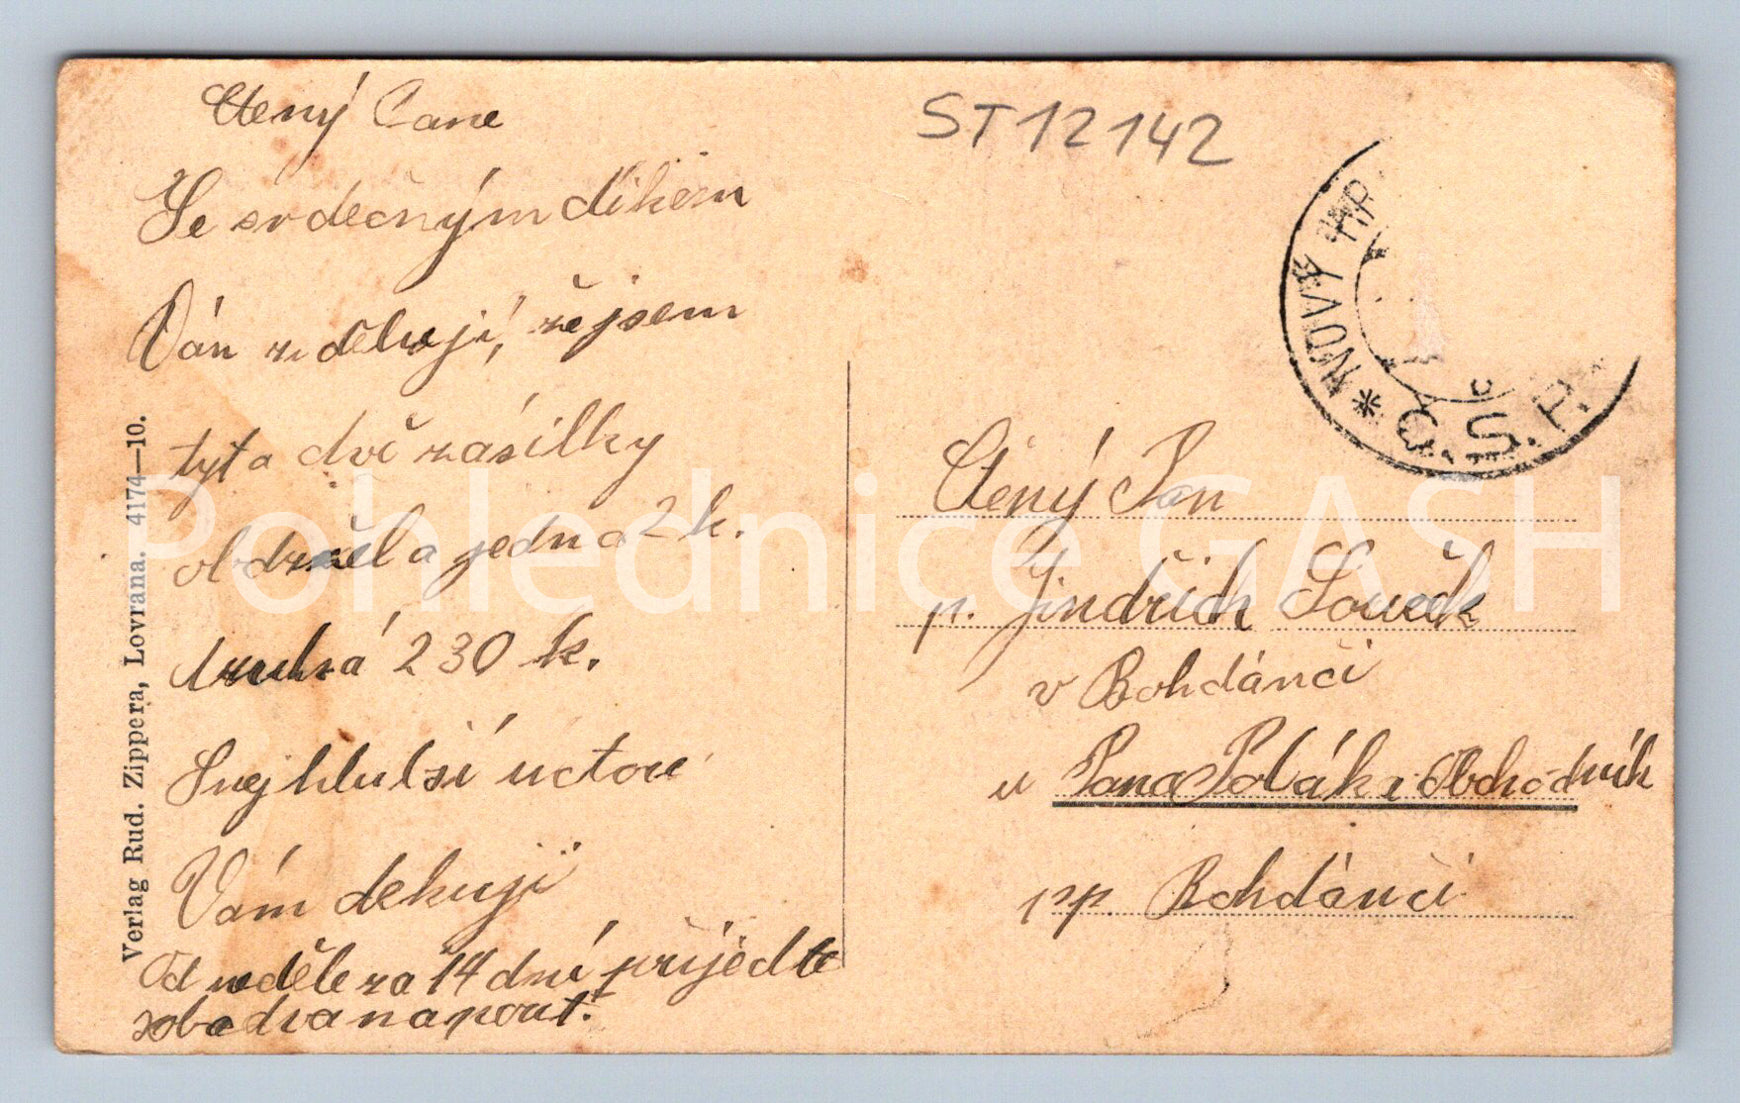 Ctený Pane
Se srdečným díkem
Vám zděluji, že jsem
tyto dvě zásilky
obdržela jedna 2 k.
druhá 230 k.
S nejhlubší úctou
Vám dekuji
Od neděle za 14 dní přijedte
oba dva na pouť.
Verlag Rud. Zippera, Lovrana. 4174—10.
ST12142
* NOVÝ HR
Č.S.R.
Ctený Pan
p. Jindřich
v Bohdánči
u Pana Poláka Obchodník
pp. Bohdánči
Pohlednice GASH